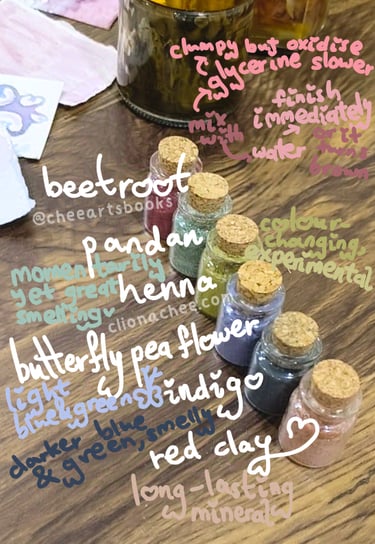 clumpy but oxidise
glycerine slower
mix
with
finish
immediately
water
or it
turns
brown
beetroot
@cheeartsbooks
pandan
momentarily
yet great
smelling
henna
colour-
changing,
experimental
clionachee.com
butterfly pea flower
light
blue & greens
indigo
darker blue
& green, smelly
red clay
long-lasting
mineral